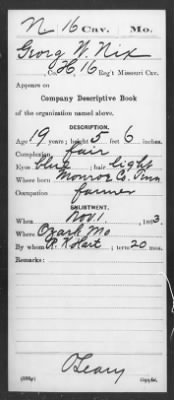 N 16 Cav. Mo.
Georg W. Nix
, Co. H, 16 Reg't Missouri Cav.
Appears on
Company Descriptive Book
of the organization named above.
DESCRIPTION.
Age 19 years; height 5 feet 6 inches.
Complexion fair
Eyes blue; hair light
Where born Monroe Co. Tenn
Occupation farmer
ENLISTMENT.
When Nov. 1, 1863.
Where Ozark Mo
By whom R. ; term 20 mos.
Remarks:
O'Leary
Copyist.